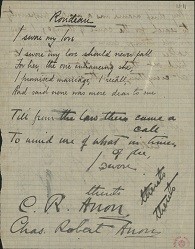 Rondeau
I swore my love
I swore my love should never fall
For her, the one enhancing she
I promised marriage, I recall
And said none was more dear to me
Till from the
there came a
call
To amend me of what
of the
I swore
thereto
C. R. Anon
thereto
thereto
Chas. Robert Anon